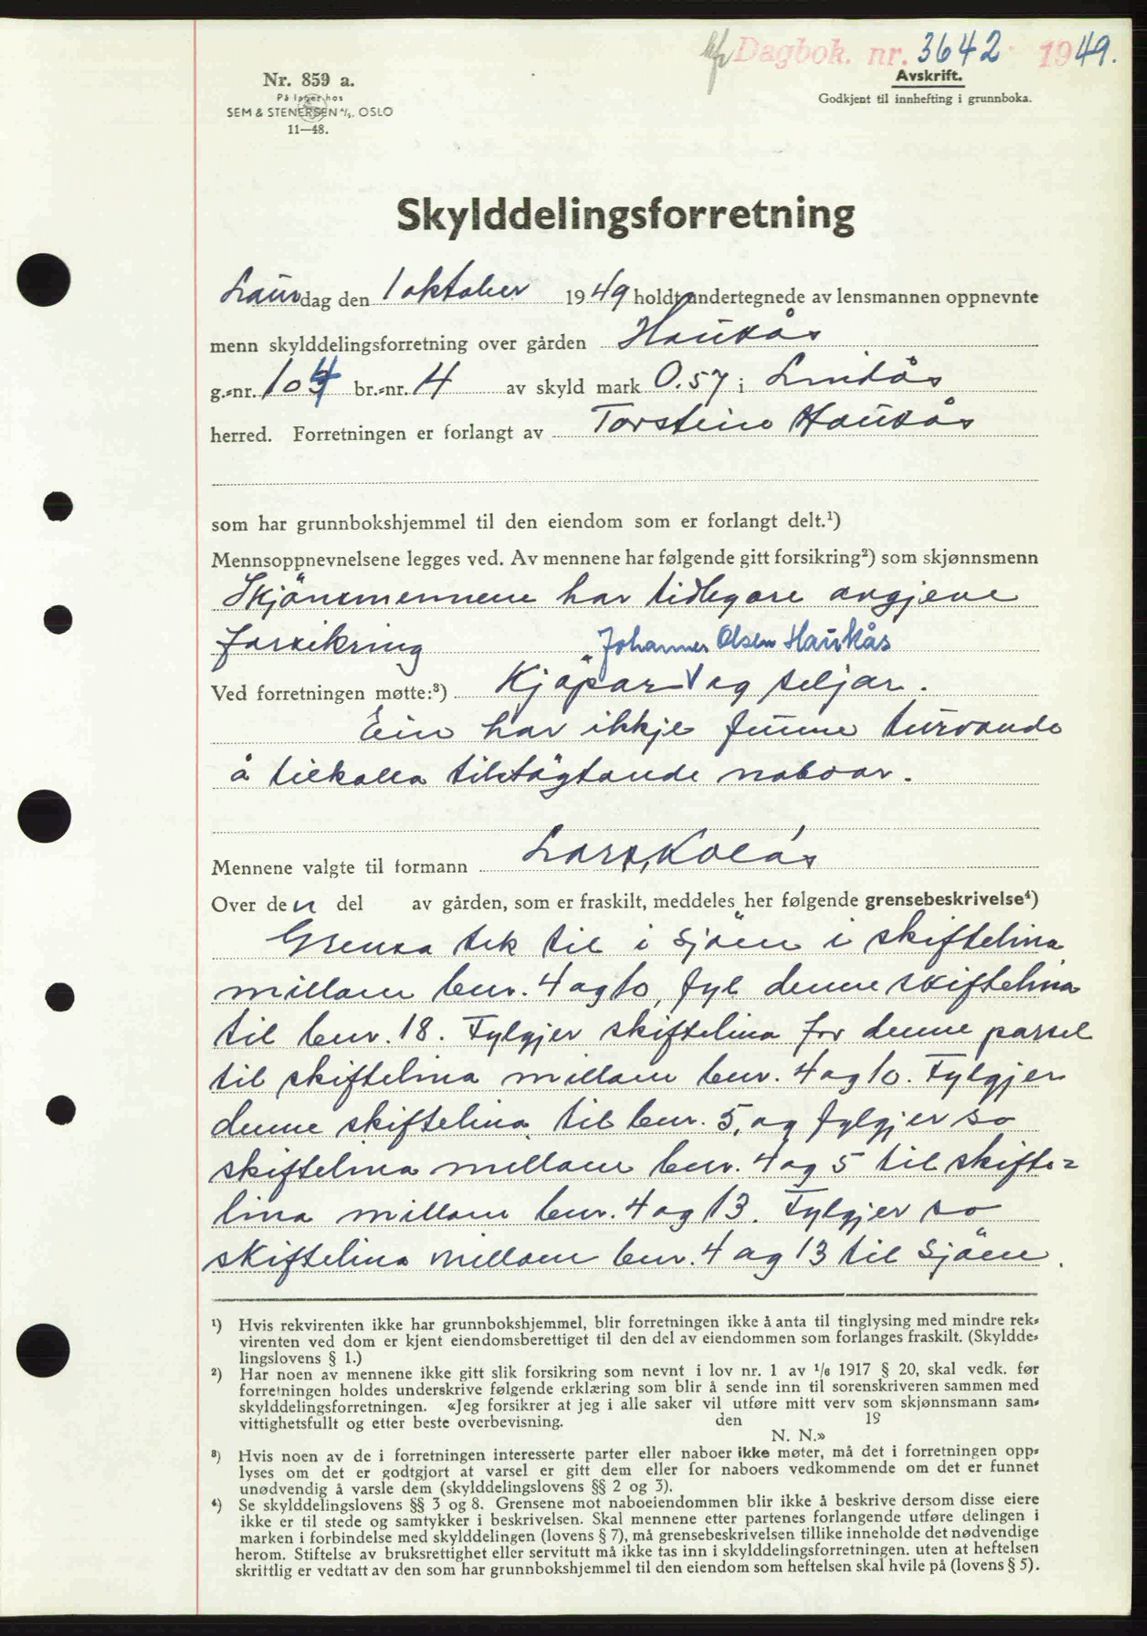 Dagbok. nr. 3642 1949.
Avskrift.
Godkjent til innhefting i grunnboka.
Nr. 859 a.
På lager hos
SEM & STENERSEN A/S. OSLO
11—48.
Skylddelingsforretning
Laurdag den 1 oktober 1949 holdt undertegnede av lensmannen oppnevnte
menn skylddelingsforretning over gården Haukås
g.-nr. 104 br.-nr. 4 av skyld mark 0.57 i Lindås
herred. Forretningen er forlangt av Torstein Haukås
som har grunnbokshjemmel til den eiendom som er forlangt delt.¹)
Mennsoppnevnelsene legges ved. Av mennene har følgende gitt forsikring²) som skjønnsmenn
Skjönsmennene har tidlegare avgjeve
forsikring
Johannes Olsen Haukås
Ved forretningen møtte:³) Kjöpar V og seljar.
Ein har ikkje funne turvande
å tilkalla tilstöytande naboar.
Mennene valgte til formann Lars Kolås
Over den del av gården, som er fraskilt, meddeles her følgende grensebeskrivelse⁴)
Grensa tek til i sjöen i skiftelina
millom bnr. 4 og 10, fyl denne skiftelina
til bnr. 18. Fylgjer skiftelina for denne parsel
til skiftelina millom bnr. 4 og 10. Fylgjer
denne skiftelina til bnr. 5, og fylgjer so
skiftelina millom bnr. 4 og 5 til skifte=
lina millom bnr. 4 og 13. Fylgjer so
skiftelina millom bnr. 4 og 13 til sjöen.
¹) Hvis rekvirenten ikke har grunnbokshjemmel, blir forretningen ikke å anta til tinglysing med mindre rek-
virenten ved dom er kjent eiendomsberettiget til den del av eiendommen som forlanges fraskilt. (Skyldde-
lingslovens § 1.)
²) Har noen av mennene ikke gitt slik forsikring som nevnt i lov nr. 1 av 1/6 1917 § 20, skal vedk. før
forretningen holdes underskrive følgende erklæring som blir å sende inn til sorenskriveren sammen med
skylddelingsforretningen. «Jeg forsikrer at jeg i alle saker vil utføre mitt verv som skjønnsmann sam-
vittighetsfullt og etter beste overbevisning. den 19
N. N.»
³) Hvis noen av de i forretningen interesserte parter eller naboer ikke møter, må det i forretningen opp-
lyses om det er godtgjort at varsel er gitt dem eller for naboers vedkommende om det er funnet
unødvendig å varsle dem (skylddelingslovens §§ 2 og 3).
⁴) Se skylddelingslovens §§ 3 og 8. Grensene mot naboeiendommen blir ikke å beskrive dersom disse eiere
ikke er til stede og samtykker i beskrivelsen. Skal mennene etter partenes forlangende utføre delingen i
marken i forbindelse med skylddelingen (lovens § 7), må grensebeskrivelsen tillike inneholde det nødvendige
herom. Stiftelse av bruksrettighet eller servitutt må ikke tas inn i skylddelingsforretningen. uten at heftelsen
skrittlig er vedtatt av den som har grunnbokshjemmel til den eiendom som heftelsen skal hvile på (lovens § 5).